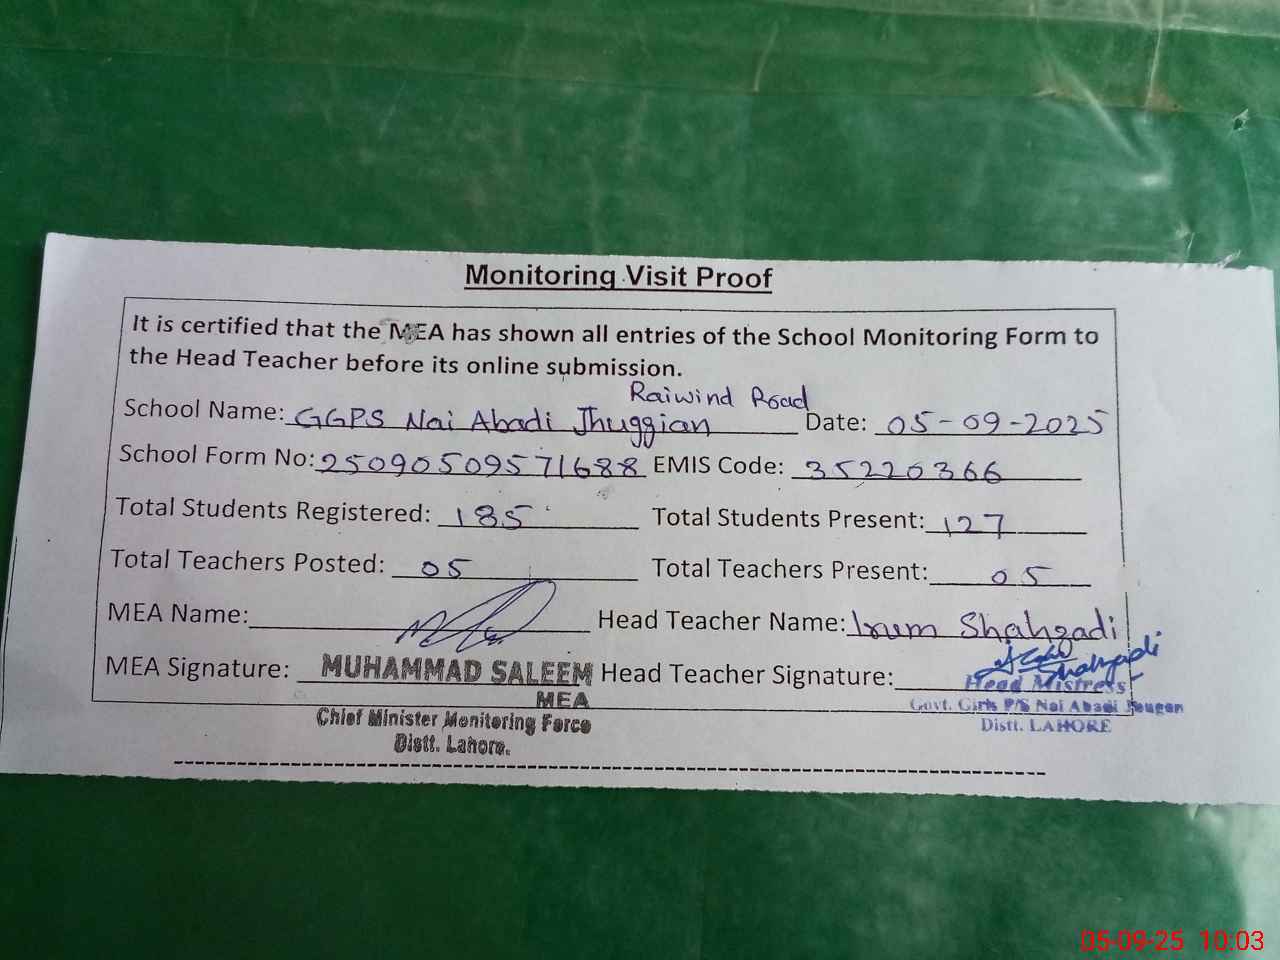 Monitoring Visit Proof
It is certified that the MEA has shown all entries of the School Monitoring Form to
the Head Teacher before its online submission.
Raiwind Road
School Name: GGPS Nai Abadi Jhuggian Date: 05-09-2025
School Form No: 25090509571688 EMIS Code: 35220366
Total Students Registered: 185 Total Students Present: 127
Total Teachers Posted: 05 Total Teachers Present: 05
MEA Name: Head Teacher Name: Irum Shahzadi
MEA Signature: MUHAMMAD SALEEM Head Teacher Signature: Shahzadi
MEA Head Mistress
Chief Minister Monitoring Force Govt. Girls P/S Nai Abadi
Distt. Lahore. Distt. LAHORE
05-09-25 10:03